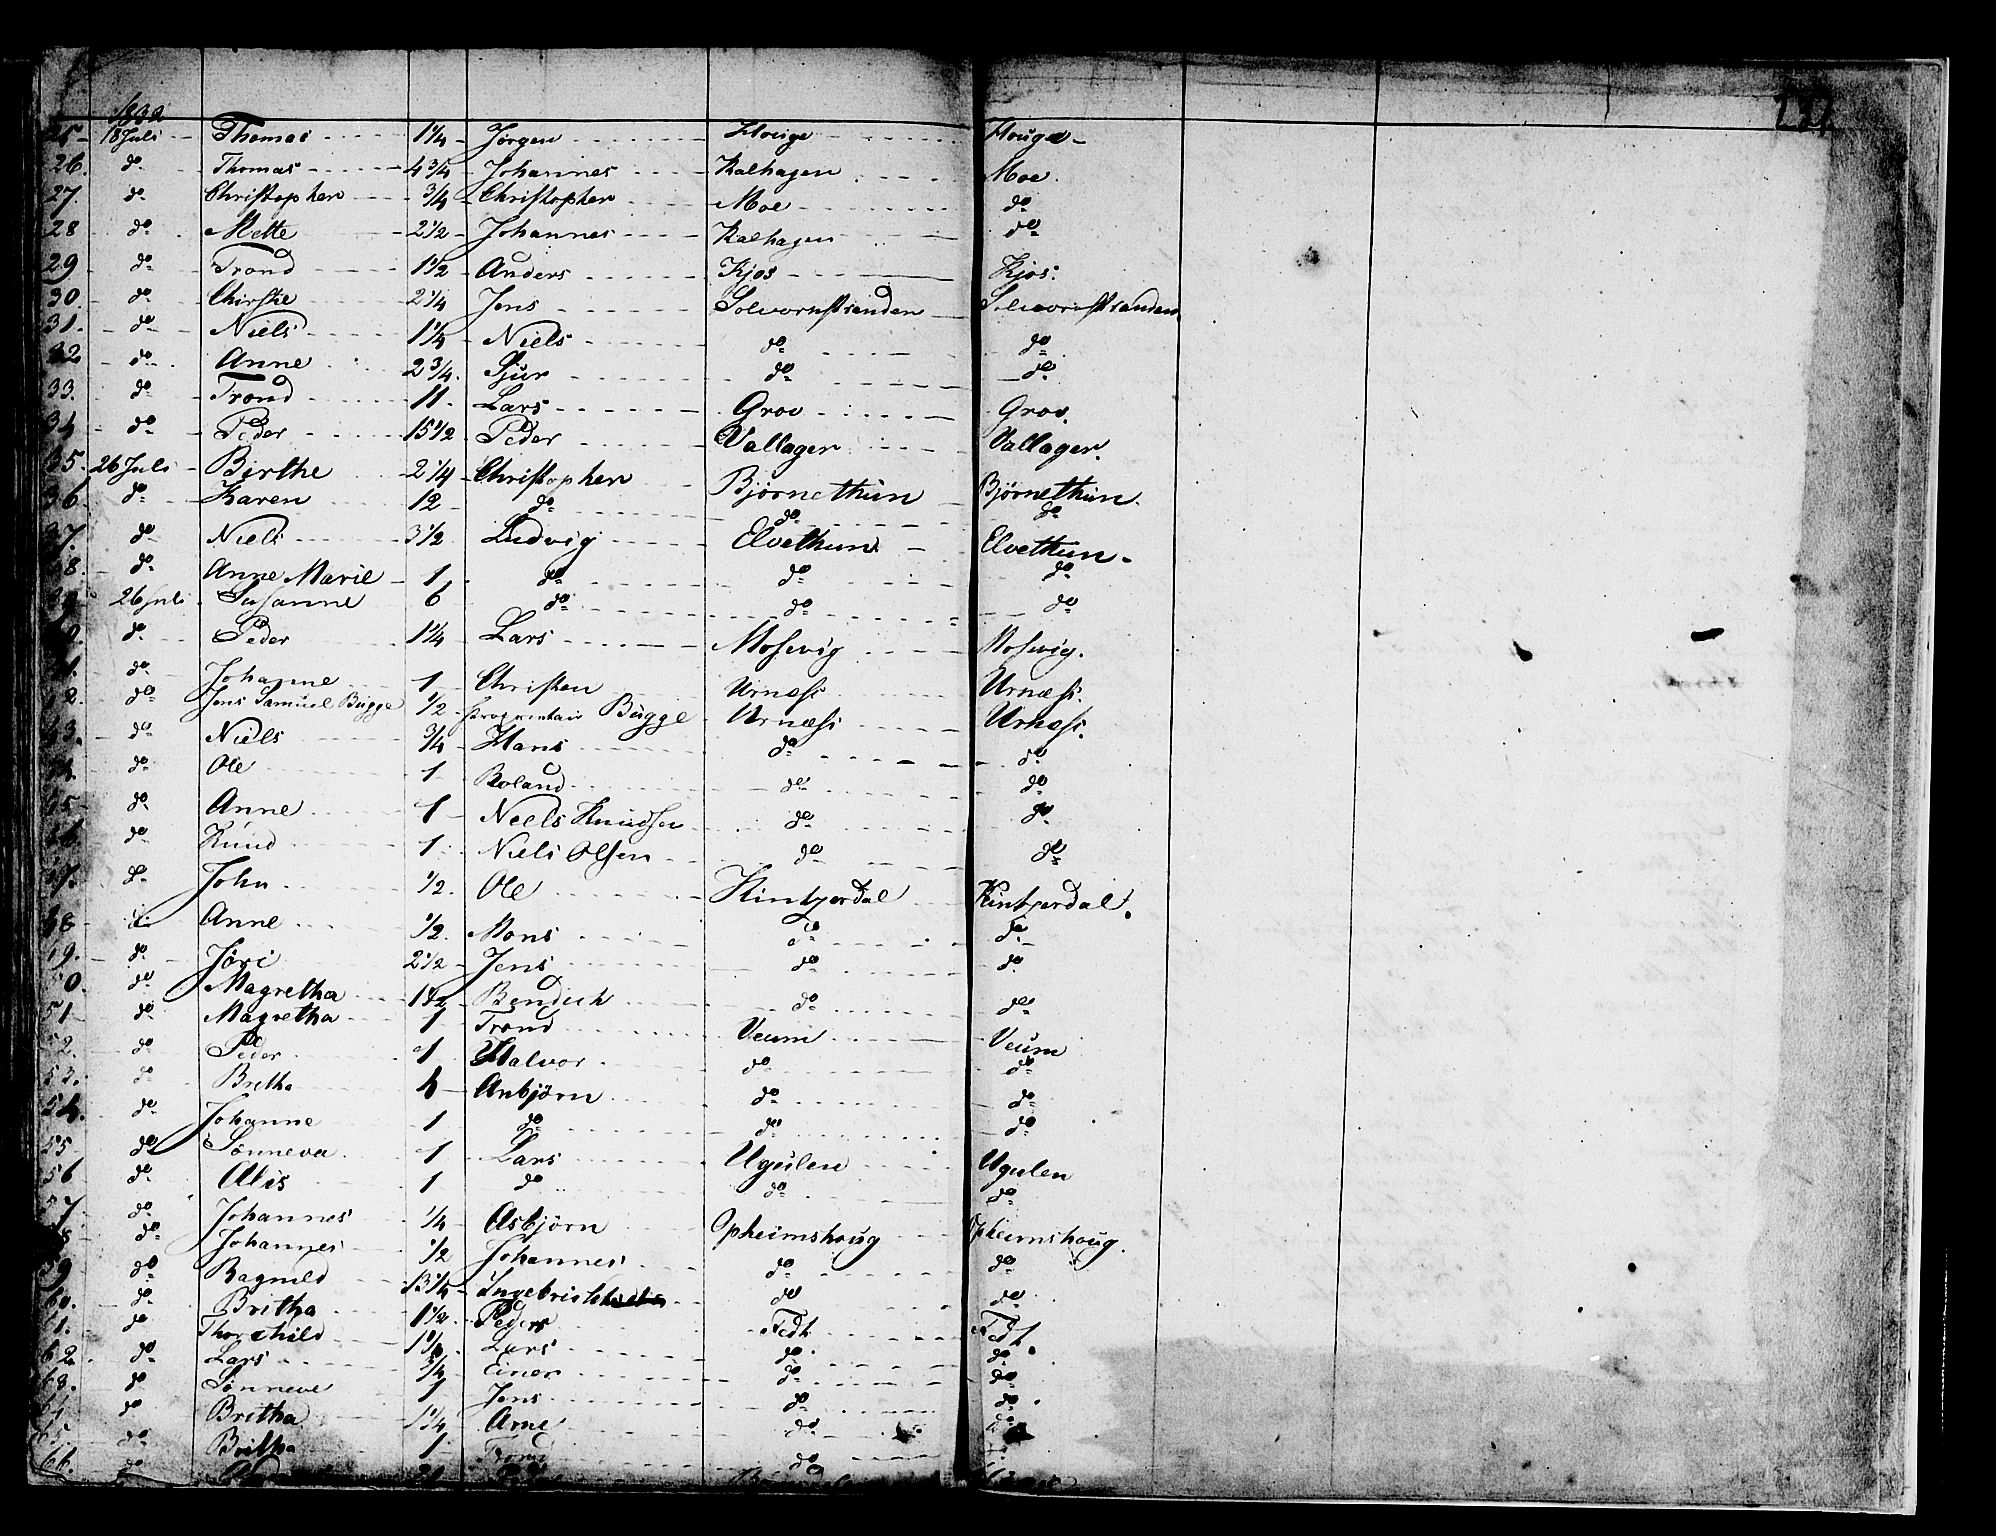 1832
25 18 Juli Thomas 1 1/4 Jørgen Houge Houge
26. do Thomas 4 3/4 Johannes Kalhagen Moe.
27. do Christopher 3/4 Christopher Moe do
28 do Mette 2 1/2 Johannes Kalhagen do
29 do Trond 1 1/2 Anders Kjos Kjos.
30 do Chirstie 2 1/4 Jens Solvornstranden Solvornstranden
31. do Niels 1 1/4 Niels do do
32 do Anne 2 3/4. Sjur do do
33. do Trond 11. Lars Grov Grov.
34 do Peder 15 1/2 Peder Vallager Vallager.
35. 26 Juli Birthe 2 1/4 Christopher Bjørnethun Bjørnethun.
36. do Karen 12 do do do
37. do Niels 3 1/2 Ludvig Elvethun Elvethun
38. do Anne Marie 1 do do do
39. 26 juli Susanne 6 do do do
do Peder 1 1/4 Lars Mosevig Mosevig.
do Johanne 1 Christen Urness Urness.
do Jens Samuel Bugge 1/2 Bugge Urness Urness.
43. do Niels 3/4 Hans do do
do Ole 1 Roland do do
45 do Anne 1 Niels Knudsen do do
do Knud 1 Niels Olsen do do
do John 1/2. Ole Kintzerdal Kintzerdal.
48 do Anne 1/2. Mons do do
49. do Jøri 2 1/2 Jens do do
50. do Magretha 1 1/2 Bendich do do
51 do Magretha 1 Trond Veum Veum
52. do Peder 1 Halvor do do
53. do Bretha 4 Anbjørn do do
54. do Johanne 1 do do do
55 do Sønneva 1 Lars Ugulen Ugulen
56 do Alis 1 do do do
57 do Johannes 1/4 Asbjørn Opheimshoug Opheimshoug.
do Johannes 1/2 Johannes do do
59 do Ragnild 13 1/4 do do
60. do Britha 1 1/2. Peder Fedt Fedt.
61. do Thorchild Lars do do
62. do Lars 3/4 Einer do do
63. do Sønneve 1 Jens do do
64 do Britha 1 1/4 Arne do do
65. do Britha 1 Trond do
66. do